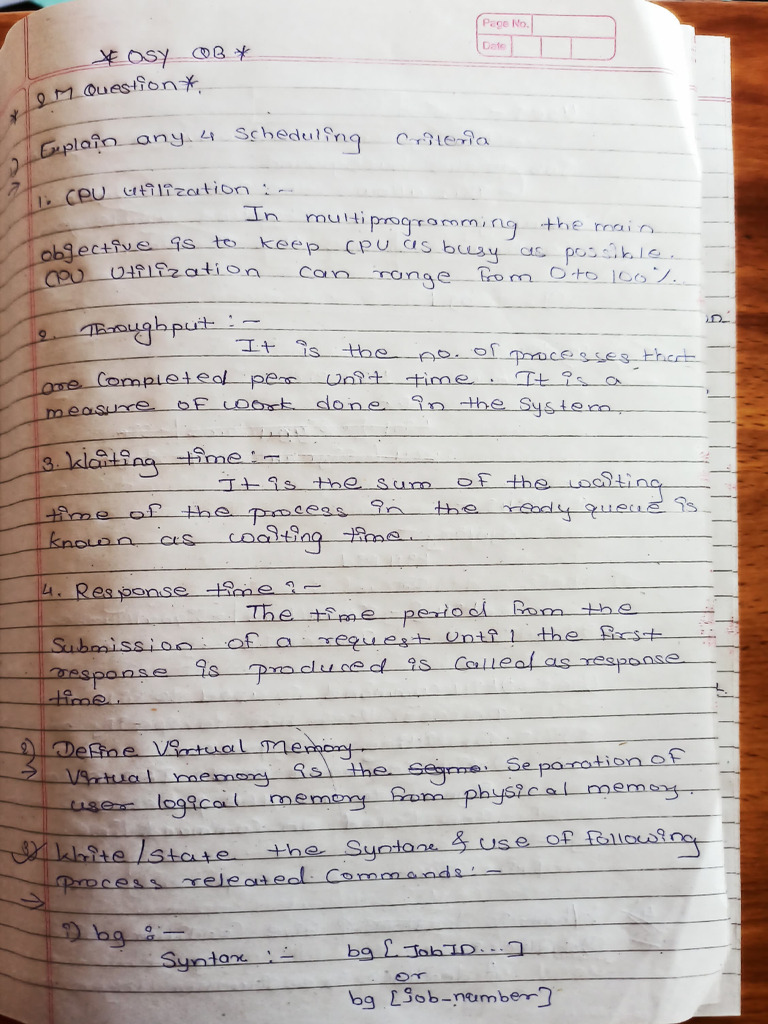 Page No.
Date
* OSY QB *
* 2 M Question *.
1) Explain any 4 Scheduling Criteria
→ 1. CPU utilization :-
In multiprogramming the main
objective is to keep CPU as busy as possible.
CPU Utilization can range from 0 to 100%.
2. Throughput :-
It is the no. of processes that
are Completed per unit time. It is a
measure of work done in the System.
3. Waiting time :-
It is the sum of the waiting
time of the process in the ready queue is
known as waiting time.
4. Response time :-
The time period from the
Submission of a request until the first
response is produced is Called as response
time.
2) Define Virtual Memory.
→ Virtual memory is the segme. Separation of
user logical memory from physical memory.
3) Write / State the Syntax & Use of following
process releated Commands :-
→
i) bg :-
Syntax :- bg [JobID...]
or
bg [job-number]